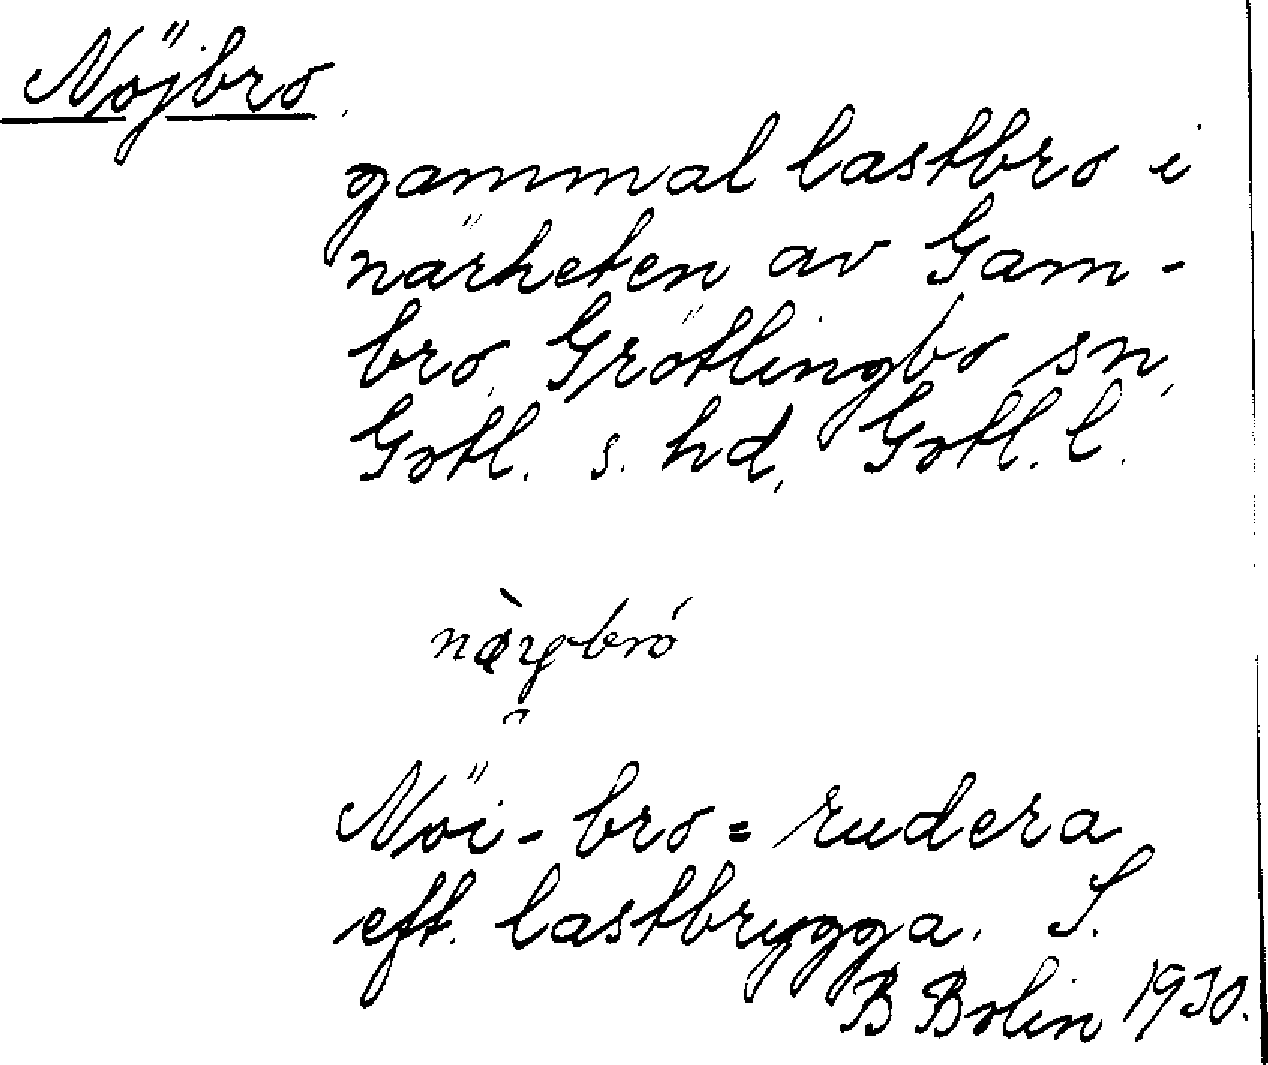 Nöjbro.
gammal lastbro i
närheten av Gam-
bro, Grötlingbo sn,
Gotl. s. hd, Gotl. l.
Nöi-bro = rudera
eft. lastbrygga. S.
B Bolin 1930.